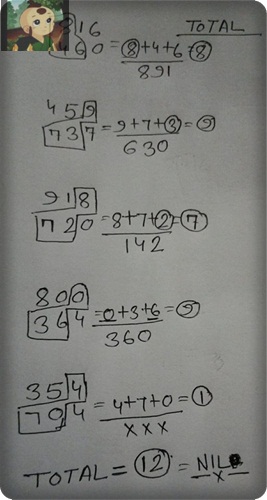 TOTAL
816
460 = 8+4+6=8
891
459
737 = 9+7+3=9
630
918
720 = 8+7+2=7
142
800
364 = 0+3+6=9
360
354
704 = 4+7+0=1
XXX
TOTAL = 12 = NIL
X